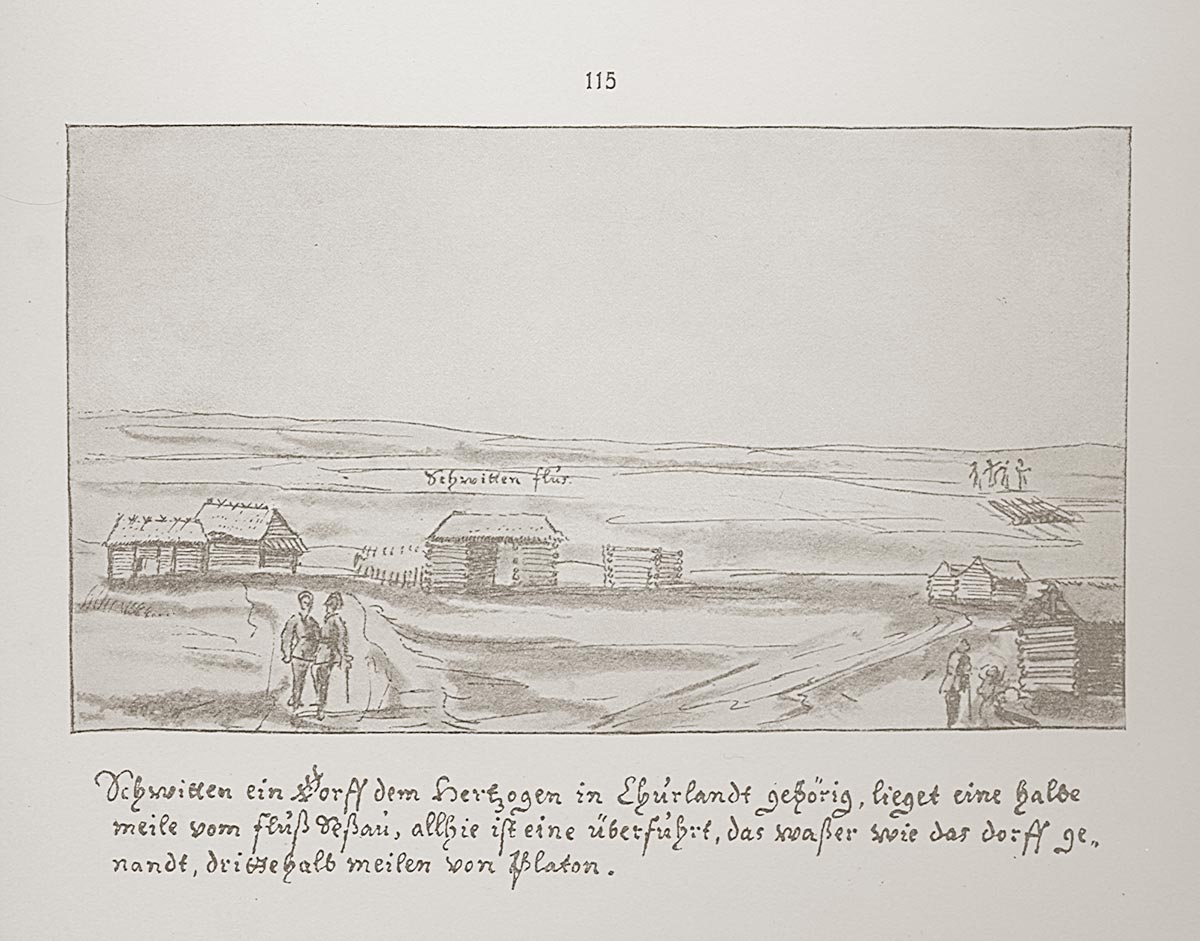 115
Schwitten flus.
Schwitten ein Dorff dem Hertzogen in Churlandt gehörig, lieget eine halbe
meile vom fluß Seßau, allhie ist eine überfuhrt, das waßer wie das dorff ge„
nandt, drittehalb meilen von Platon.